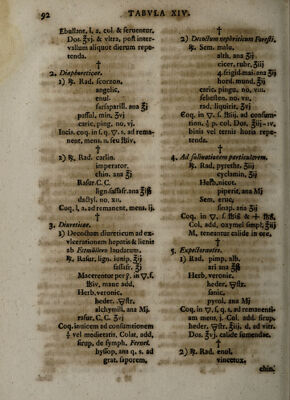 92 TABVLA XIV.
Ebullant. l. a. col. & seruentur.
Dos. ʒvj. & vltra, post inter-
vallum aliquot dierum repe-
tenda.
†
2. Diaphoreticæ.
1) ℞. Rad. scorzon.
angelic.
enul.
sarsaparill. ana ℥j
passul. min. ʒvj
caric. ping. no. vj.
Incis. coq. in s. q. ▽. s. ad rema-
nent. mens. n. seu ℔iv.
†
2) ℞. Rad. carlin.
imperator.
chin. ana ℥j
Rasur. C. C.
lign. sassafr. ana ℥jß
dactyl. no. xij.
Coq. l. a. ad remanent. mens. ij.
†
3. Diureticæ.
1) Decoctum diureticum ad ex-
ulcerationem hepatis & lienis
ab Ettmüllero laudatum.
℞. Rasur. lign. iunip. ℥ij
sassafr. ℥j
Macerentur per in ▽. s.
℔iv. mane add.
Herb. veronic.
heder. ▽str.
alchymill. ana Mj.
rasur. C. C. ʒvj
Coq. inuicem ad consumtionem
vel medietatis. Colat. add.
sirup. de symph. Fernel.
hyssop. ana q. s. ad
grat. saporem.
†
2) Decoctum nephriticum Foresti.
℞. Sem. malu.
alth. ana ℥ij
cicer. rubr. ℥iij
4 frigid. mai. ana ℥ij
hord. mund. ℥ij
caric. pingu. no. viii.
sebesten. no. vii.
rad. liquirit. ʒvj
Coq. in ▽. s. ℔iij. ad consum-
tion. p. col. Dos. ℥iij-iv.
binis vel ternis horis repe-
tenda.
†
4. Ad saliuationem particularem.
℞. Rad. pyrethr. ℥iij
cyclamin. ℥ij
Herb. nicot.
piperit. ana Mj
Sem. eruc.
sinap. ana ℥ij
Coq. in ▽. s. ℔iß &
Col. add. oxymel simpl.
M. teneantur calide in ore.
†
5. Expectorantes.
1) Rad. pimp. alb.
ari ana ℥ß
Herb. veronic.
heder. ▽str.
sanic.
pyrol. ana Mj
Coq. in ▽. s. q. s. ad remanenti-
am mens. j. Col. add. sirup.
heder. ▽str. ℥iij. d. ad vitr.
Dos. ʒvj. calide sumendae.
†
2) ℞. Rad. enul.
vincetox.
chin.